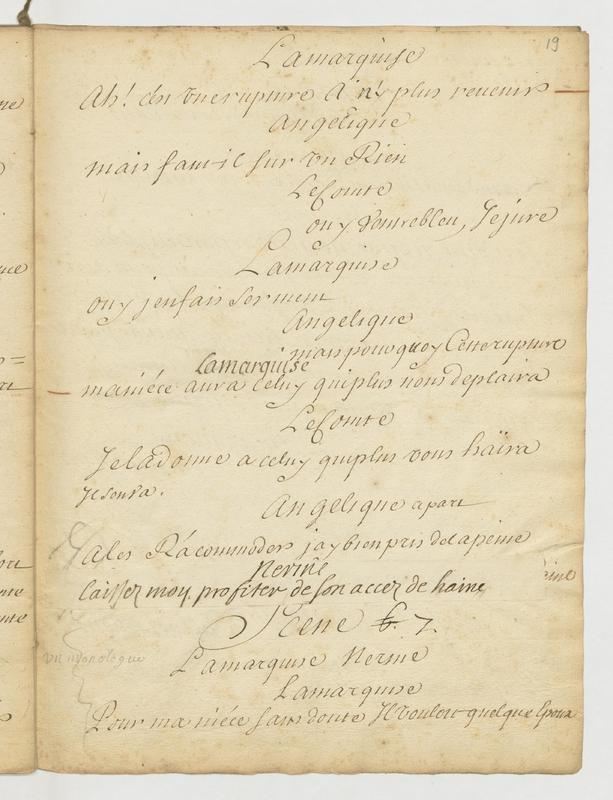 19
Lamarquise
Ah! c'en vne rupture A n'y plus reuenir
Angelique
mais faut-il sur vn Rien
LeComte
ouy Ventrebleu, Je jure
Lamarquise
ouy j'en fais serment
Angelique
mais pourquoy Cette rupture
Lamarquise
maniéce aura celuy qui plus nous deplaira
LeComte
Je la donne a celuy qui plus vous haïra
Angelique apart
A les Racommoder jay bien pris de la peine
Nerine
laissez moy profiter de son accez de haine
Scene 6. 7.
vn monologue
Lamarquise Nerine
Lamarquise
Pour ma niéce sans doute Il vouloit quelque Epoux